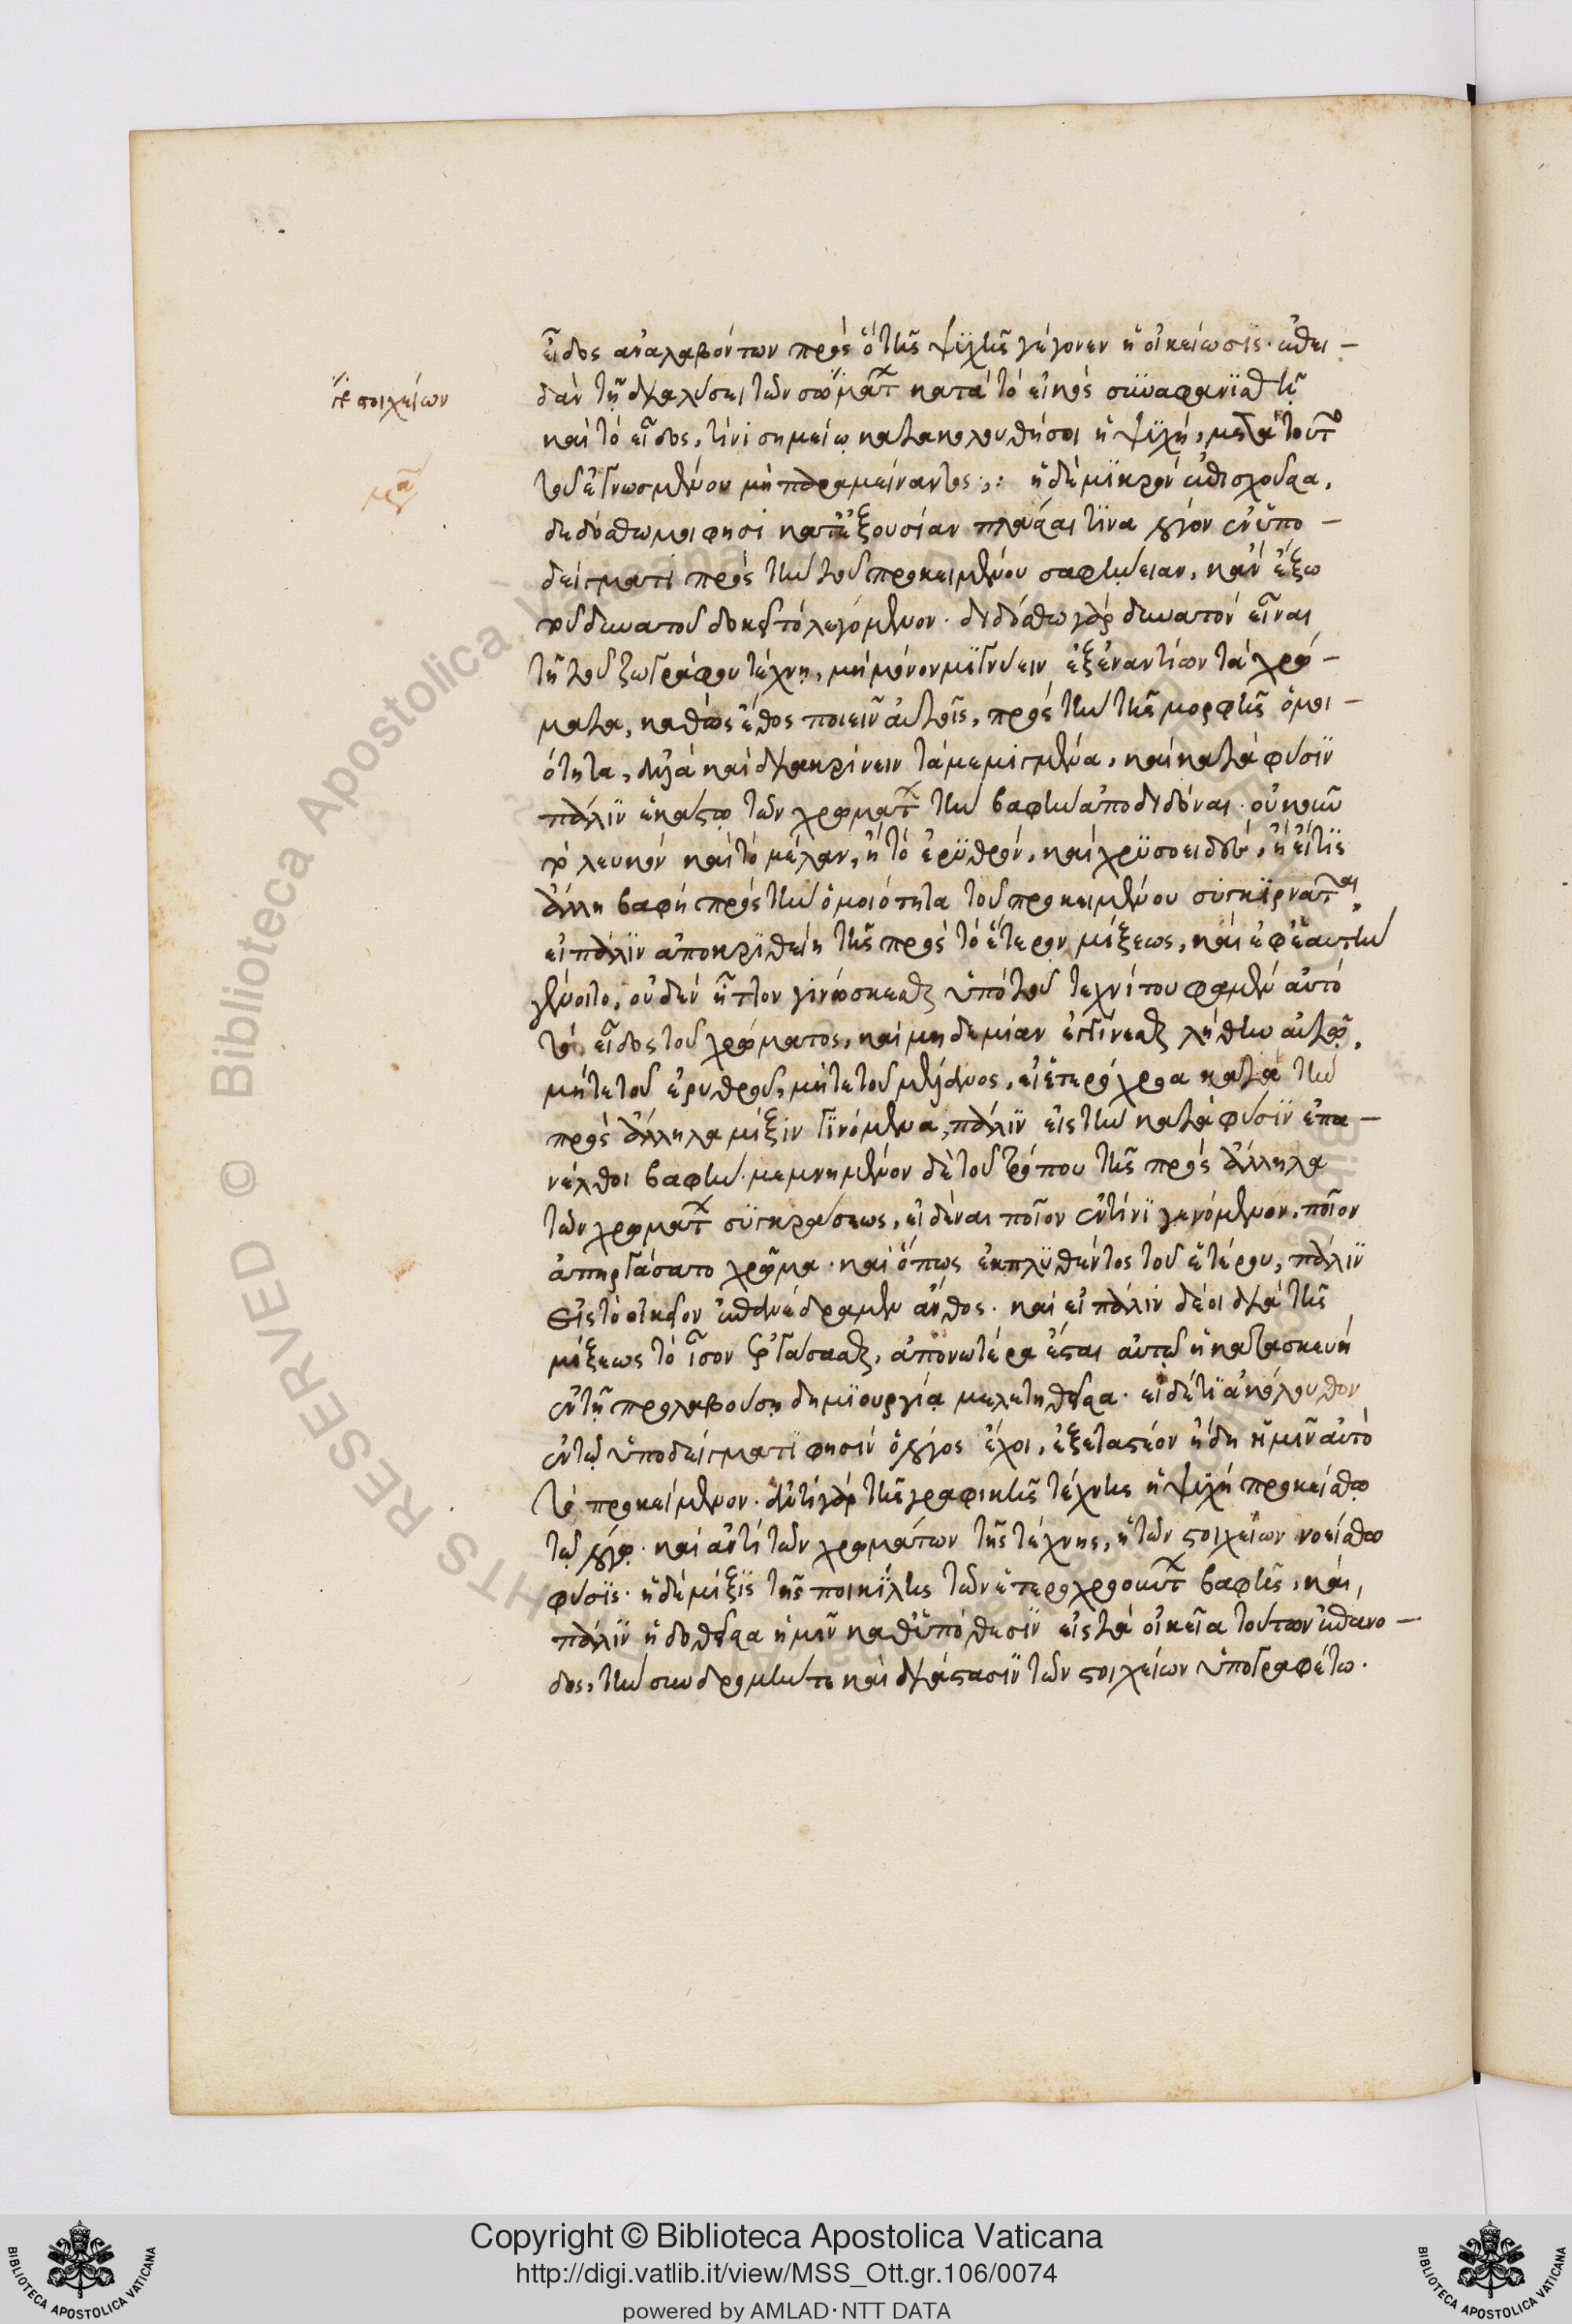 εἶδος ἀναλαβόντων πρὸς ὃ τῆς ψϋχῆς γέγονεν ἡ οἰκείωσϊς· ἐπει-
δὰν τῇ διαλύσει τῶν σωμάτ κατὰ τὸ εἰκὸς σϋναφανϊσθῇ
ἢ στοιχείων
καὶ τὸ εἶδος, τίνι σημείῳ κατακολουθήσοι ἡ ψϋχὴ, μετὰ τοῦτο
τοῦ ἐγνωσμένου μὴ παραμείναντος; ἡ δὲ μϊκρὸν ἐπισχοῦσα,
δεδόσθω μοι φησὶ κατ' ἐξουσίαν πλάσαι τϊνα λόγον ἐν ὑπο-
δείγματι πρὸς τὴν τοῦ προκειμένου σαφήνειαν, κἂν ἔξω
τοῦ δυνατοῦ δοκεῖ τὸ λεγόμενον· δεδόσθω γὰρ δυνατὸν εἶναι
τῇ τοῦ ζωγράφου τέχνῃ, μὴ μόνον μϊγνύειν ἐξ ἐναντίων τὰ χρώ-
ματα, καθὼς ἔθος ποιεῖν αὐτοῖς, πρὸς τὴν τῆς μορφῆς ὁμοι-
ότητα, ἀλλὰ καὶ διακρίνειν τὰ μεμιγμένα, καὶ κατὰ φύσϊν
πάλϊν ἑκάστῳ τῶν χρωμάτ τὴν βαφὴν ἀποδιδόναι· οὐκοῦν
τὸ λευκὸν καὶ τὸ μέλαν, ἢ τὸ ἐρϋθρὸν, καὶ χρϋσοειδὲς, ἢ εἴ τϊς
ἄλλη βαφὴ πρὸς τὴν ὁμοιότητα τοῦ προκειμένου σύγκϊρναται,
εἰ πάλϊν ἀποκρϊθείη τῆς πρὸς τὸ ἕτερον μίξεως, καὶ ἐφ' ἑαυτὴν
γένοιτο, οὐδὲν ἧττον γινώσκεσθαι ὑπὸ τοῦ τεχνίτου φαμὲν αὐτὸ
τὸ εἶδος τοῦ χρώματος, καὶ μηδεμίαν ἐγγίνεσθαι λήθην αὐτῷ,
μήτε τοῦ ἐρυθροῦ, μήτε τοῦ μέλανος, εἰ ἑτερόχροα κατὰ τὴν
πρὸς ἄλληλα μίξιν γϊνόμενα, πάλϊν εἰς τὴν κατὰ φύσϊν ἐπα-
νέλθοι βαφήν. μεμνημένον δὲ τοῦ τρόπου τῆς πρὸς ἄλληλα
τῶν χρωμάτ σϋγκράσεως, εἰδέναι ποῖον ἐν τίνϊ γενόμενον, ποῖον
ἀπηργάσατο χρῶμα· καὶ ὅπως ἐκπλϋθέντος τοῦ ἑτέρου, πάλϊν
εἰς τὸ οἰκεῖον ἐπανέδραμεν ἄνθος· καὶ εἰ πάλϊν δέοι διὰ τῆς
μίξεως τὸ ἴσον ἐργάσασθαι, ἀπονωτέρα ἔσται αὐτῷ ἡ κατασκευὴ
ἐν τῇ προλαβούσῃ δημϊουργίᾳ μελετηθεῖσα· εἰ δέ τϊ ἀκόλουθον
ἐν τῷ ὑποδείγματϊ φησὶν ὁ λόγος ἔχοι, ἐξεταστέον ἤδη ἡμῖν αὐτὸ
τὸ προκείμενον. ἀντὶ γὰρ τῆς γραφικῆς τέχνης ἡ ψϋχὴ προκείσθω
τῷ λόγῳ· καὶ ἀντὶ τῶν χρωμάτων τῆς τέχνης, ἡ τῶν στοιχείων νοείσθω
φύσϊς· ἡ δὲ μίξϊς τῆς ποικίλης τῶν ἑτεροχροούντ βαφῆς, καὶ
πάλϊν ἡ δοθεῖσα ἡμῖν καθ' ὑπόθεσϊν εἰς τὰ οἰκεῖα τούτων ἐπάνο-
δος, τὴν συνδρομήν τε καὶ διάστασϊν τῶν στοιχείων ὑπογραφέτω.
© Biblioteca Apostolica Vaticana
Copyright © Biblioteca Apostolica Vaticana
http://digi.vatlib.it/view/MSS_Ott.gr.106/0074
powered by AMLAD·NTT DATA
BIBLIOTECA APOSTOLICA VATICANA
BIBLIOTECA APOSTOLICA VATICANA